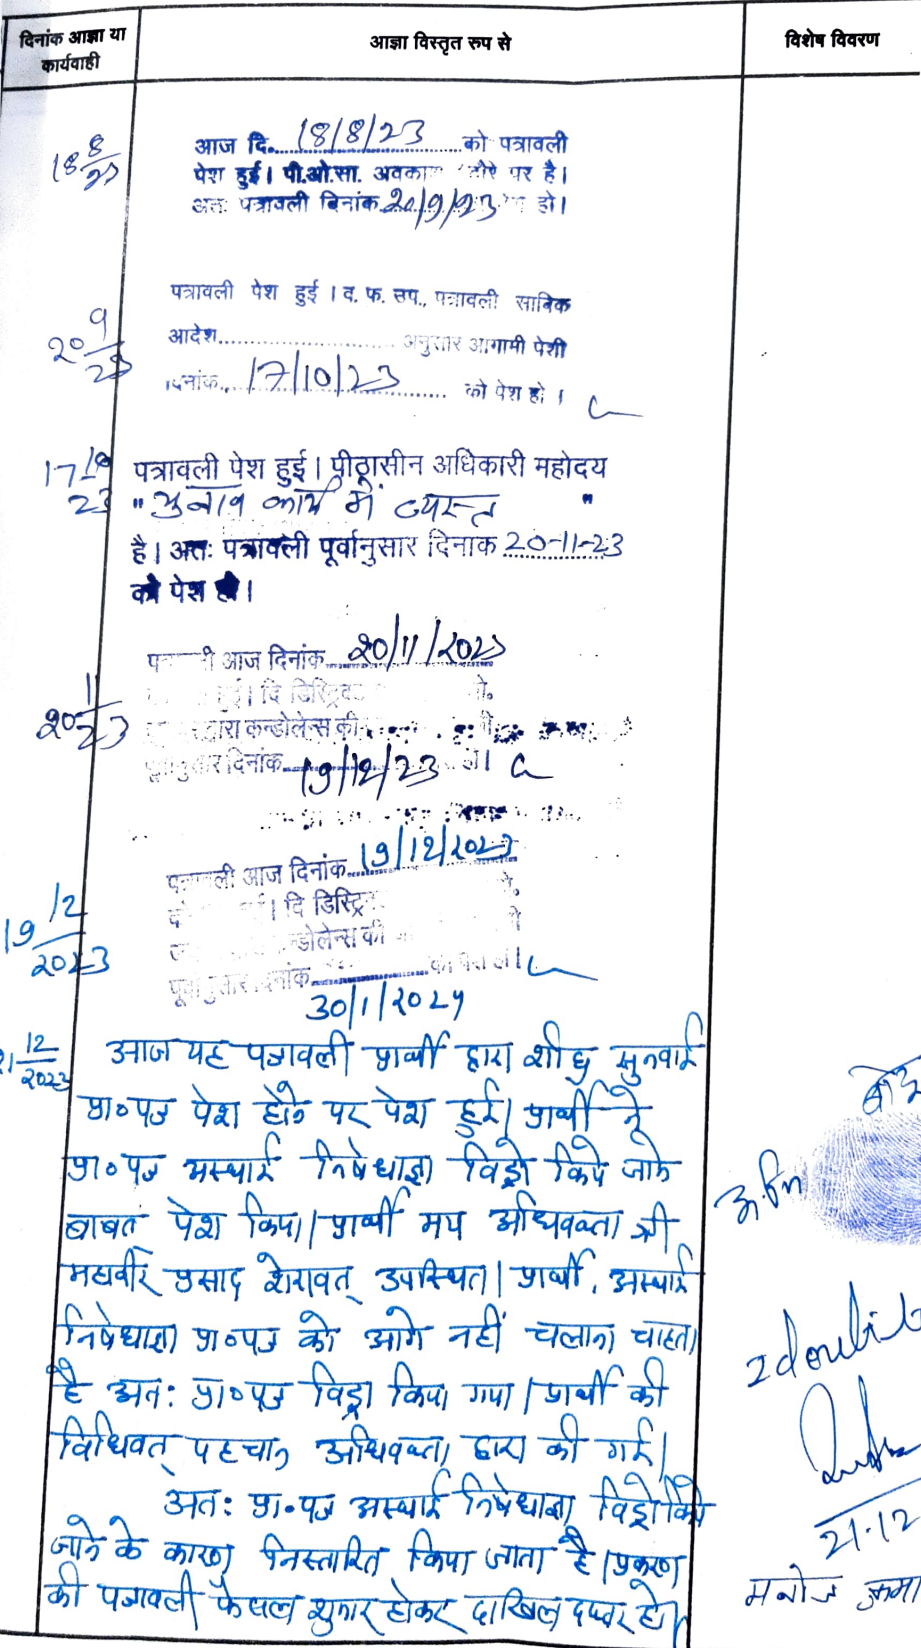 दिनांक आज्ञा या
कार्यवाही
आज्ञा विस्तृत रुप से
विशेष विवरण
18 8/23
आज दि. 18/8/23 को पत्रावली
पेश हुई। पी.ओ.सा. अवकाश दौरे पर है।
अतः पत्रावली दिनांक 20/9/23 हो।
20 9/23
पत्रावली पेश हुई । व. फ. उप., पत्रावली साबिक
आदेश अनुसार आगामी पेशी
दिनांक 17/10/23 को पेश हो ।
17 10/23
पत्रावली पेश हुई। पीठासीन अधिकारी महोदय
" चुनाव कार्य में व्यस्त "
है। अतः पत्रावली पूर्वानुसार दिनाक 20-11-23
को पेश हो।
20 11/23
आज दिनांक 20/11/2023
हुई। दि डिस्ट्रिक्ट
द्वारा कन्डोलेन्स की
पूर्वानुसार दिनांक 19/12/23
19 12/2023
आज दिनांक 19/12/2023
दि डिस्ट्रिक्ट
कन्डोलेन्स की
पूर्वानुसार दिनांक को पेश हो।
30/1/2024
21 12/2023
आज यह पत्रावली प्रार्थी द्वारा शीघ्र सुनवाई
प्रा०पत्र पेश होने पर पेश हुई। प्रार्थी ने
प्रा०पत्र अस्थाई निषेधाज्ञा विड्रो किये जाने
बाबत पेश किया। प्रार्थी मय अधिवक्ता श्री
महावीर प्रसाद शेरावत् उपस्थित। प्रार्थी, अस्थाई
निषेधाज्ञा प्रा०पत्र को आगे नहीं चलाना चाहता
है अतः प्रा०पत्र विड्रा किया गया। प्रार्थी की
विधिवत् पहचान अधिवक्ता द्वारा की गई।
अतः प्रा०पत्र अस्थाई निषेधाज्ञा विड्रो किये
जाने के कारण निस्तारित किया जाता है। प्रकरण
की पत्रावली फैसल शुमार होकर दाखिल दफ्तर हो।
21.12
मनोज कुमा